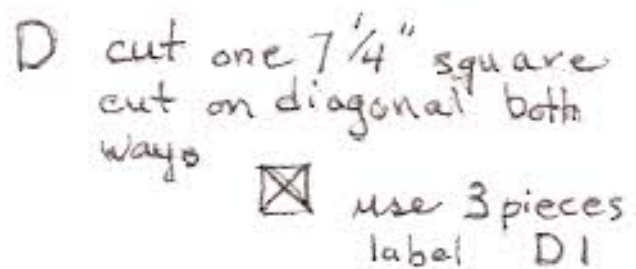 D cut one 7 1/4" square
cut on diagonal both
ways
use 3 pieces
label D1